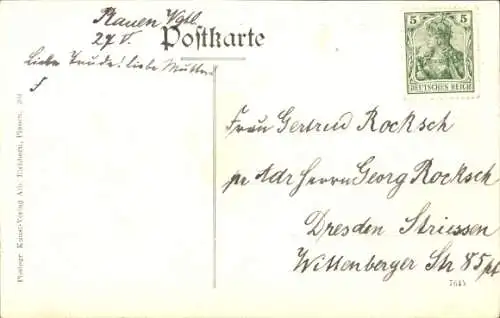 Plauen Vgtl.
27 V.
Postkarte
Liebe Trude! liebe Mutter
5 5
DEUTSCHES REICH
Frau Gertrud Rocksch
pr Adr Herrn Georg Rocksch
Dresden Striessen
Wittenberger Str 85 pt
7645
Kunst-Verlag Alb. Plauen.